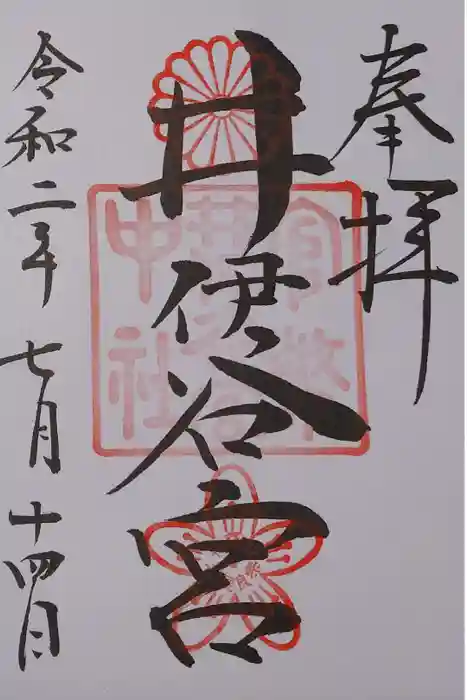 奉拝
井伊谷宮
令和二年七月十四日
中社